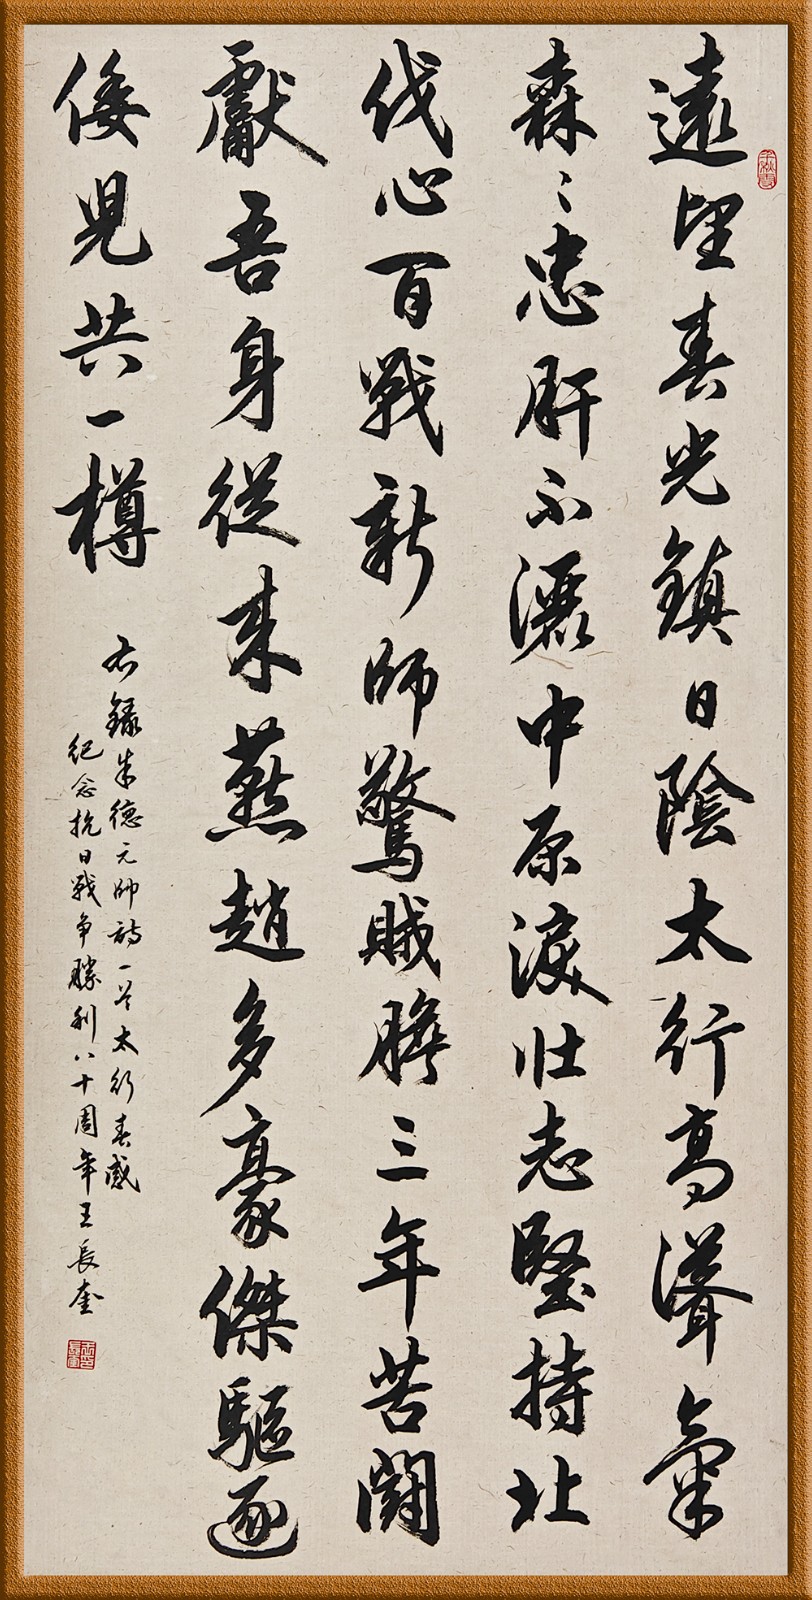 遠望春光鎮日陰太行高聳氣
森〻忠肝不灑中原淚壯志堅持北
伐心百戰新師驚賊膽三年苦鬪
獻吾身從來燕趙多豪傑驅逐
倭兒共一樽
右錄朱德元帥詩一首太行春感
紀念抗日戰爭勝利八十周年王長奎